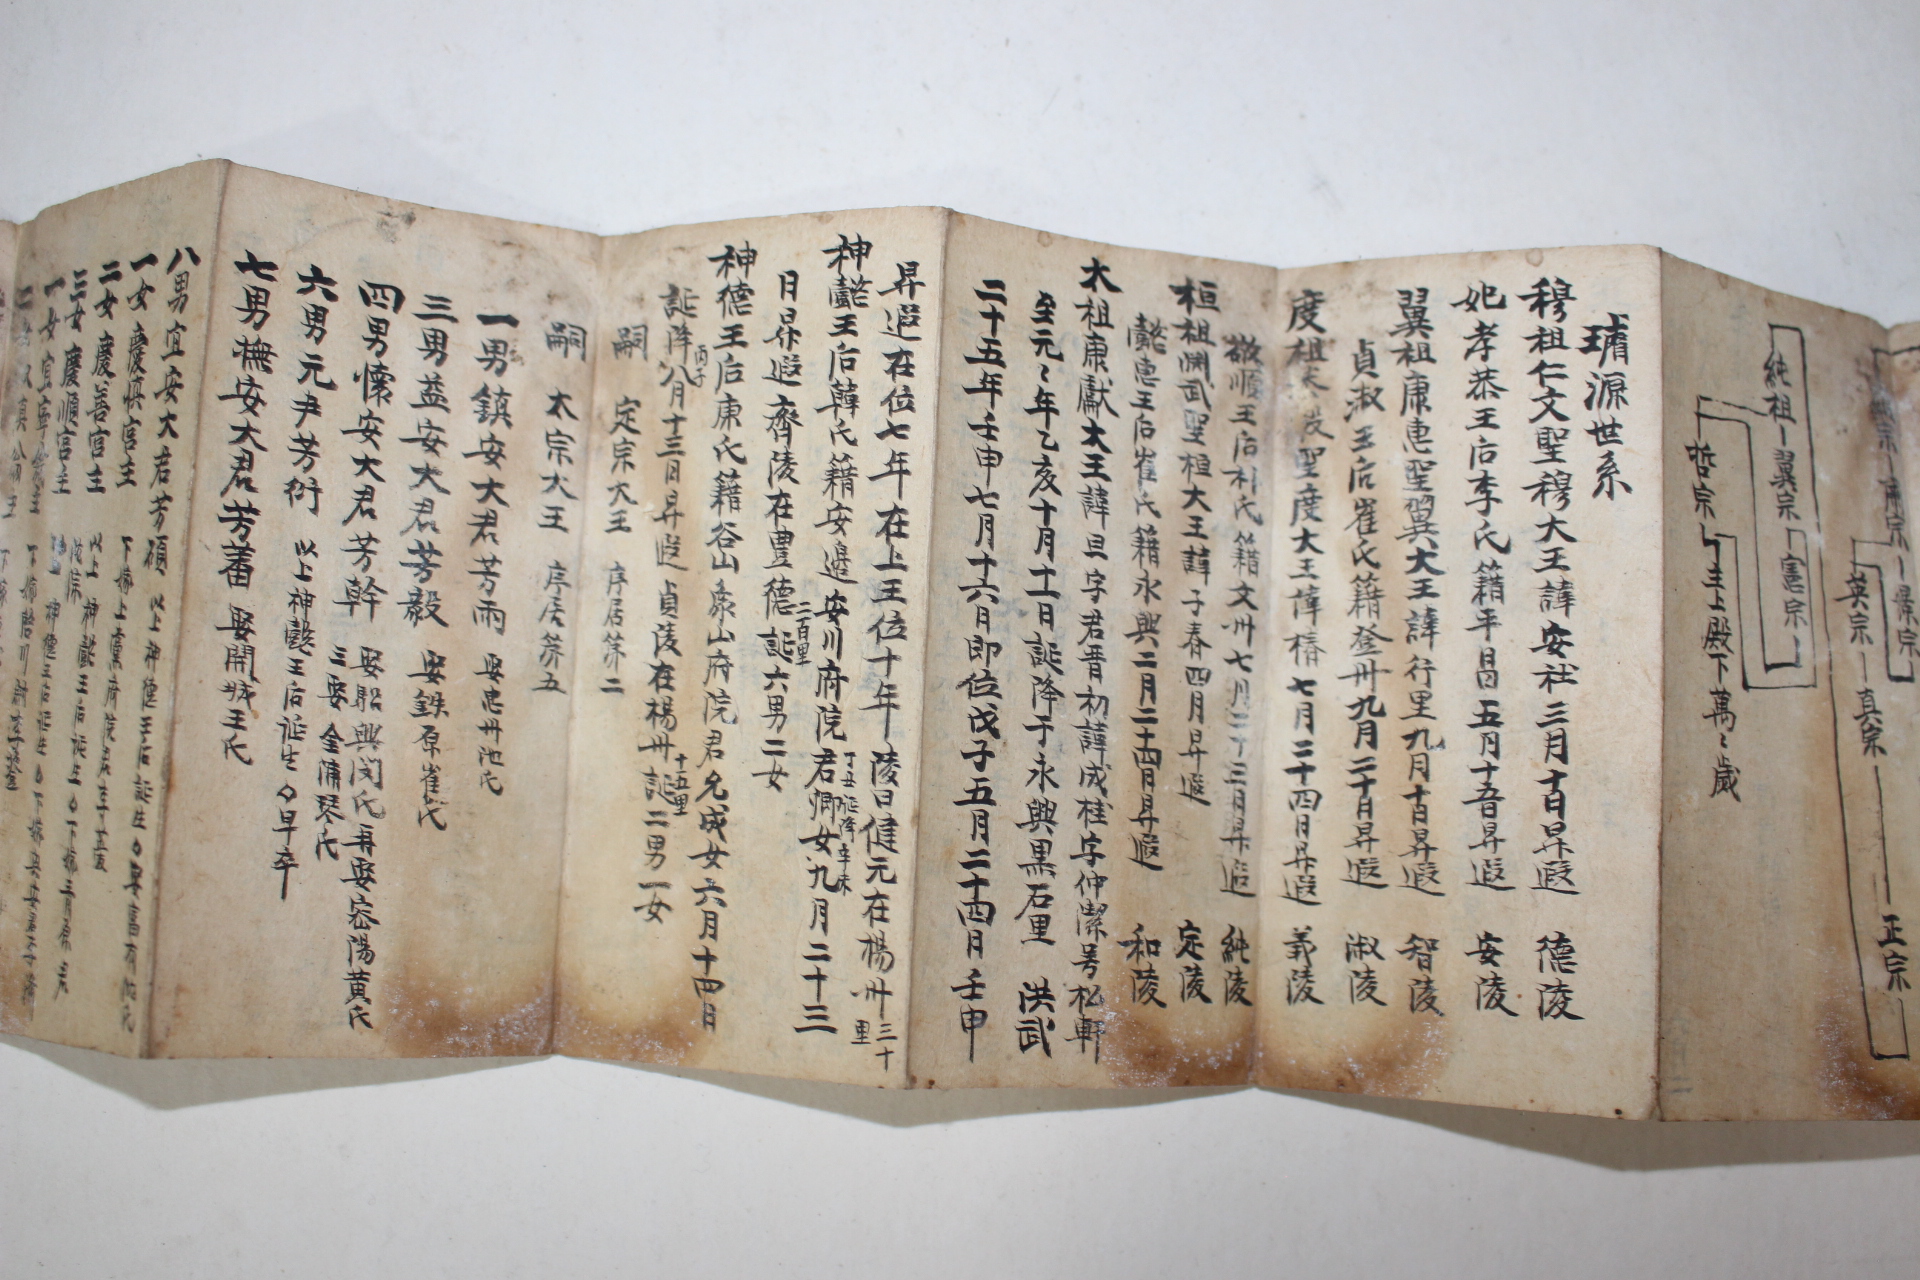 純祖 翼宗 憲宗
哲宗 主上殿下萬々歲
景宗
英宗 真宗 正宗
璿源世系
穆祖仁文聖穆大王諱安社三月十日昇遐 德陵
妃孝恭王后李氏籍平昌五月十五日昇遐 安陵
翼祖康惠聖翼大王諱行里九月十日昇遐 智陵
貞淑王后崔氏籍登州九月二十日昇遐 淑陵
度祖 聖度大王諱椿七月二十四日昇遐 義陵
敬順王后朴氏籍文州七月二十三日昇遐 純陵
桓祖淵武聖桓大王諱子春四月昇遐 定陵
懿惠王后崔氏籍永興二月二十四日昇遐 和陵
太祖康獻大王諱旦字君晋初諱成桂字仲潔号松軒
至元々年乙亥十月十一日誕降于永興黑石里 洪武
二十五年壬申七月十六日即位戊子五月二十四日壬申
昇遐在位七年在上王位十年 陵曰健元在楊州三十里
神懿王后韓氏籍安邊安川府院君卿女九月二十三
丁丑誕降辛未
日昇遐齊陵在豊德二百里誕六男二女
神德王后康氏籍谷山象山府院君允成女六月十四日
誕降丙子八月十三日昇遐 貞陵在楊州十五里誕二男一女
嗣 定宗大王 序居第二
嗣 太宗大王 序居第五
一男鎮安大君芳雨 娶忠州池氏
三男益安大君芳毅 娶鉄原崔氏
四男懷安大君芳幹 娶驪興閔氏再娶密陽黄氏
三娶金浦琴氏
六男元尹芳衍 以上神懿王后誕生○早卒
七男撫安大君芳蕃 娶開城王氏
八男宜安大君芳碩 以上神德王后誕生○娶富有沈氏
一女慶慎宮主 下嫁上黨府院君李
二女慶善宮主 以上神懿王后誕生
三女慶順宮主 神德王后誕生○下嫁
一女宜寧翁主